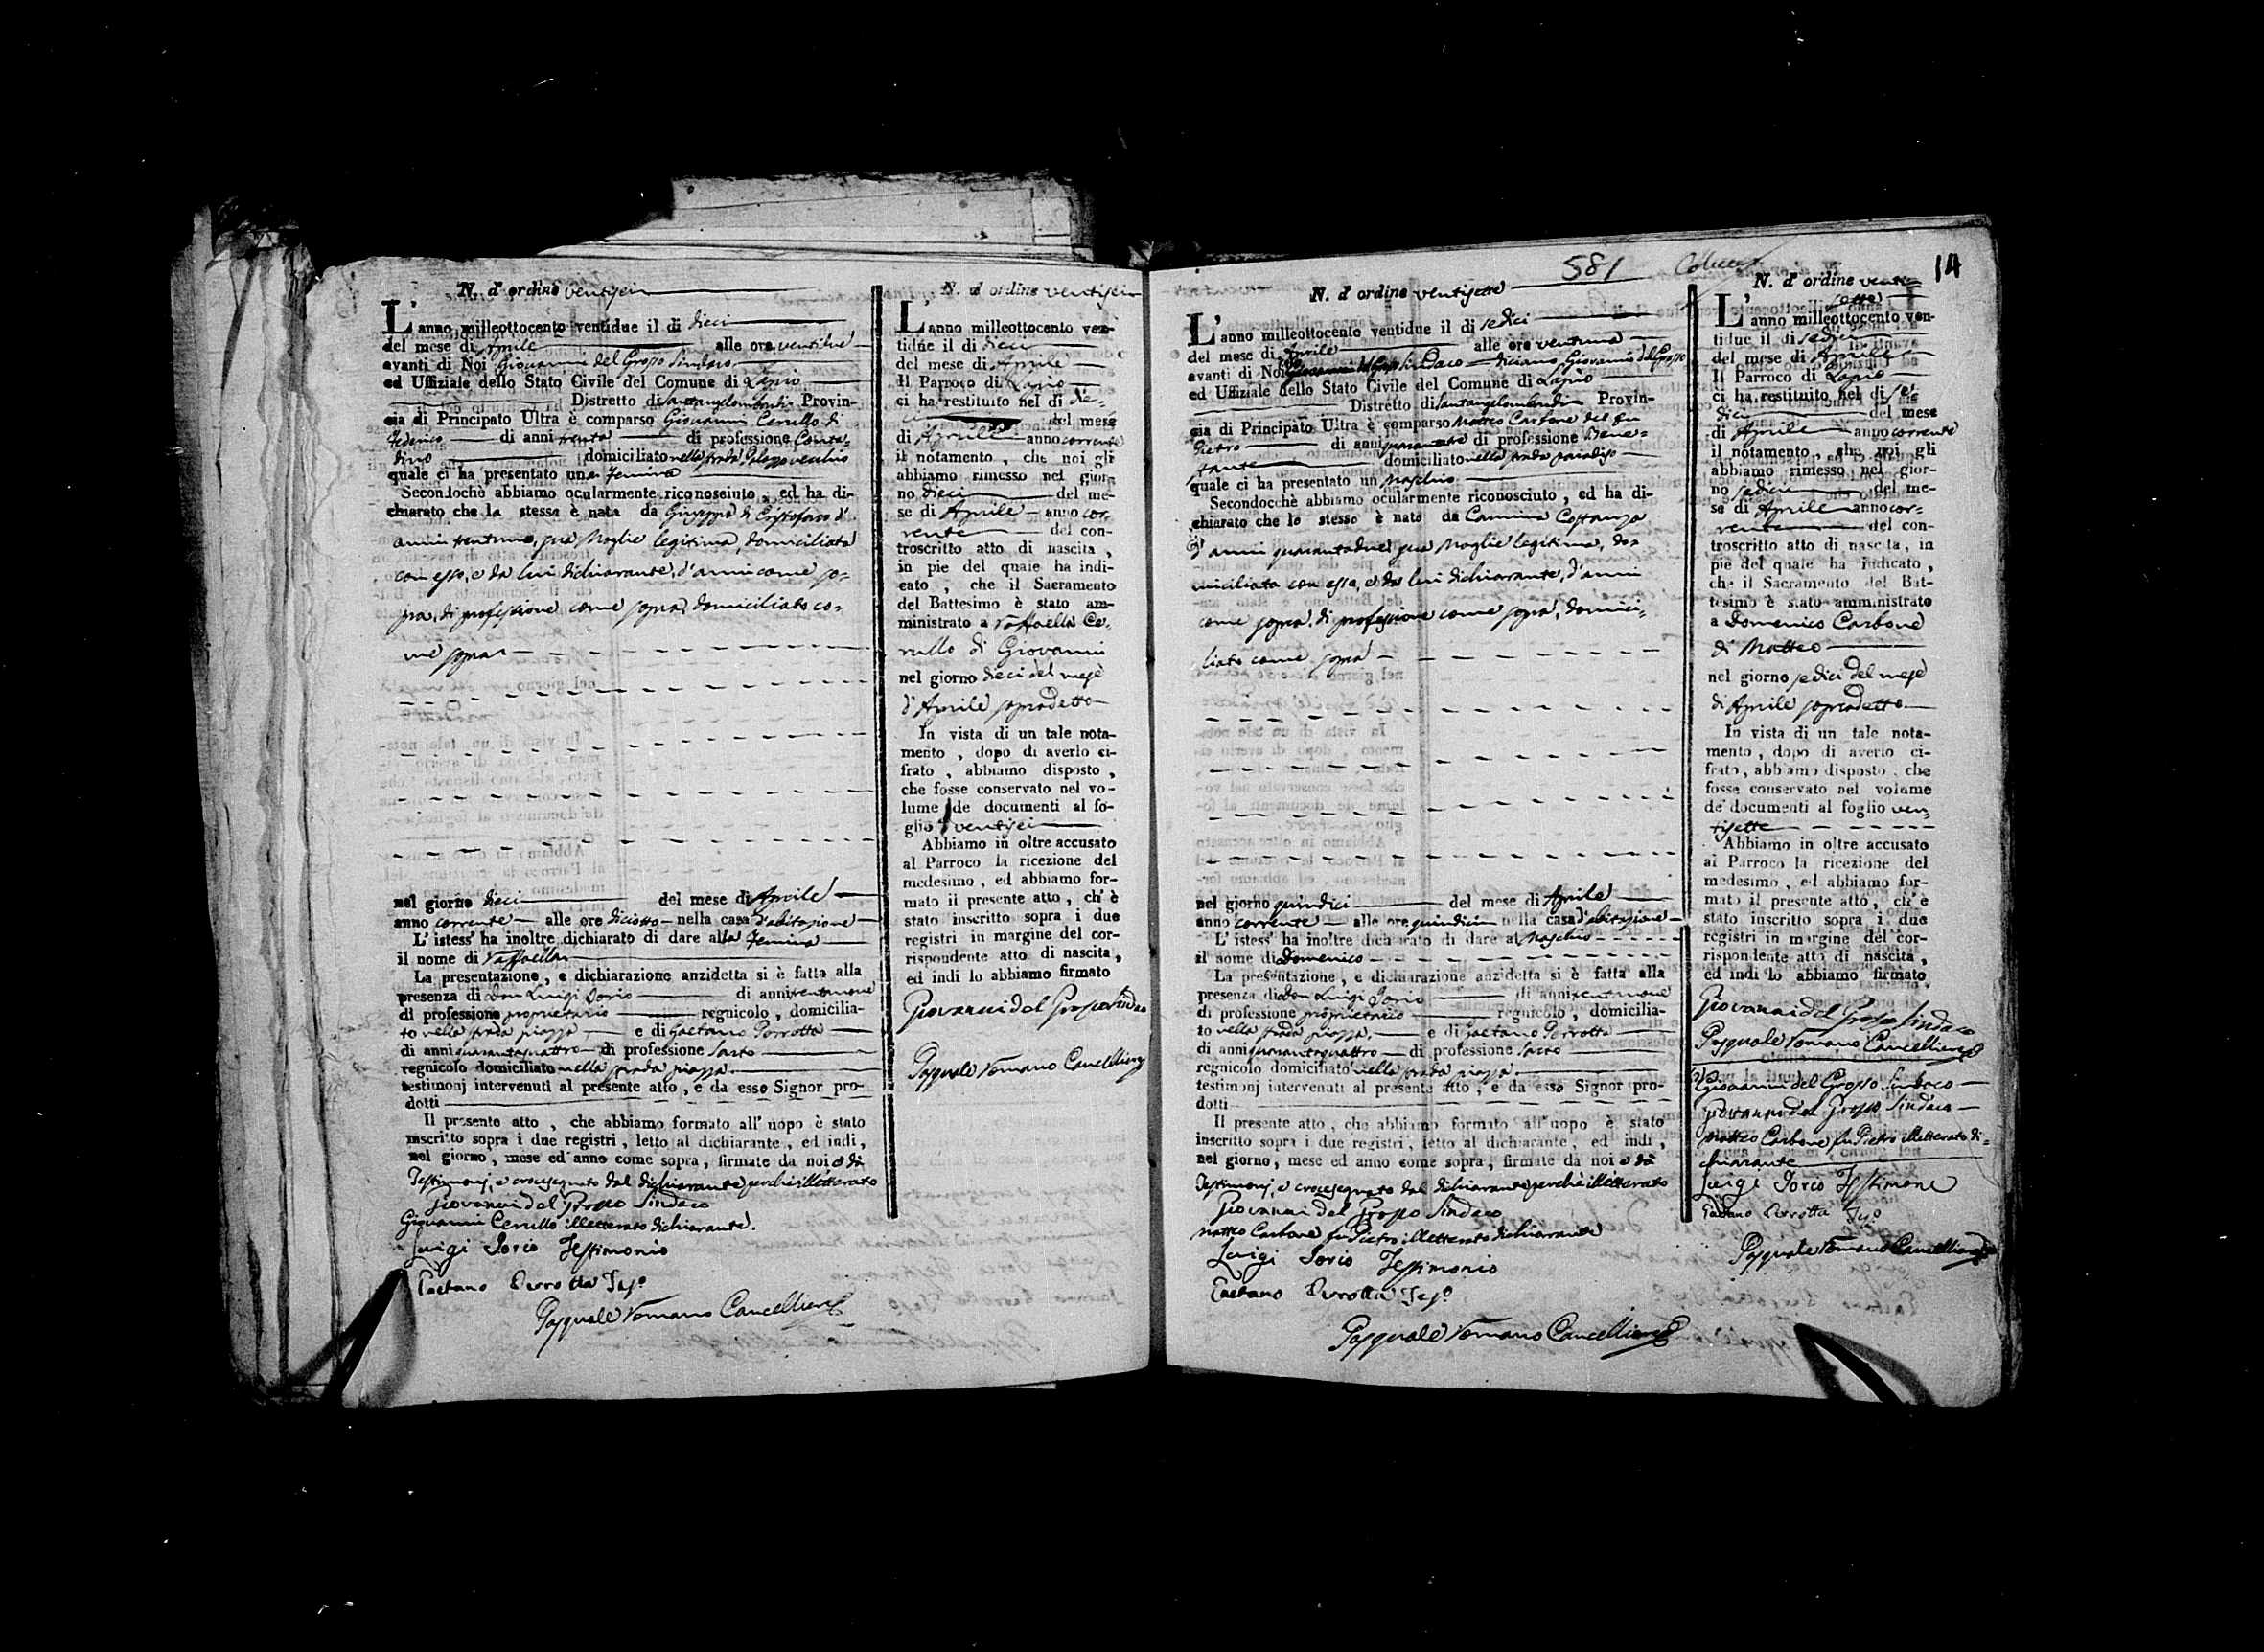 N. d'ordine ventisei
L'anno milleottocento ventidue il di dieci
del mese di Aprile alle ore ventidue
avanti di Noi Giovanni del Grosso Sindaco
ed Uffiziale dello Stato Civile del Comune di Lapio
Distretto di Santangelombardi Provin-
cia di Principato Ultra è comparso Giovanni Cerullo di
Federico di anni trenta di professione Conta-
dino domiciliato nella strada Palazzo vecchio
quale ci ha presentato una Femina
Secondochè abbiamo ocularmente riconosciuto, ed ha di-
chiarato che la stessa è nata da Giuseppa di Cristofaro d'
anni trentuno, sua Moglie legitima, domiciliata
con esso, e da lui dichiarante, d'anni come so-
pra, di professione come sopra, domiciliato co-
me sopra
nel giorno dieci del mese di Aprile
anno corrente alle ore diciotto nella casa d'abitazione
L'istess' ha inoltre dichiarato di dare alla Femina
il nome di Raffaella
La presentazione, e dichiarazione anzidetta si è fatta alla
presenza di Don Luigi Iorio di anni
di professione proprietario regnicolo, domicilia-
to nella strada piazza e di Gaetano Porrotta
di anni quarantaquattro di professione Sarto
regnicolo domiciliato nella strada piazza
testimonj intervenuti al presente atto, e da esso Signor pro-
dotti
Il presente atto, che abbiamo formato all'uopo è stato
inscritto sopra i due registri, letto al dichiarante, ed indi,
nel giorno, mese ed anno come sopra, firmate da noi e da
Testimonj, e crocesegnato dal dichiarante perchè illetterato
Giovanni del Grosso Sindaco
Giovanni Cerullo illetterato dichiarante.
Luigi Iorio Testimonio
Gaetano Porrotta Tesº
Pasquale Romano Cancelliere
N. d'ordine ventisei
L'anno milleottocento ven-
tidue il di dieci
del mese di Aprile
Il Parroco di Lapio
ci ha restituito nel di die-
ci del mese
di Aprile anno corrente
il notamento, che noi gli
abbiamo rimesso nel gior-
no dieci del me-
se di Aprile anno cor-
rente del con-
troscritto atto di nascita,
in pie del quale ha indi-
cato, che il Sacramento
del Battesimo è stato am-
ministrato a Raffaella Ce-
rullo di Giovanni
nel giorno dieci del mese
d'Aprile sopradetto
In vista di un tale nota-
mento, dopo di averlo ci-
frato, abbiamo disposto,
che fosse conservato nel vo-
lume de documenti al fo-
glio ventisei
Abbiamo in oltre accusato
al Parroco la ricezione del
medesimo, ed abbiamo for-
mato il presente atto, ch'è
stato inscritto sopra i due
registri in margine del cor-
rispondente atto di nascita,
ed indi lo abbiamo firmato
Giovanni del Grosso Sindaco
Pasquale Romano Cancelliere
581
14
N. d'ordine ventisette
L'anno milleottocento ventidue il di sedici
del mese di Aprile alle ore ventuna
avanti di Noi Sindaco diciamo Giovanni del Grosso
ed Uffiziale dello Stato Civile del Comune di Lapio
Distretto di Santangelombardi Provin-
cia di Principato Ultra è comparso Matteo Carbone del fu
Pietro di anni di professione
domiciliato nella strada paradiso
quale ci ha presentato un Maschio
Secondocchè abbiamo ocularmente riconosciuto, ed ha di-
chiarato che lo stesso è nato da Carmina Costanza
d'anni quarantadue, sua Moglie legitima, do-
miciliata con esso, e da lui dichiarante, d'anni
come sopra, di professione come sopra, domici-
liato come sopra
nel giorno quindici del mese di Aprile
anno corrente alle ore quindici nella casa d'abitazione
L'istess' ha inoltre dichiarato di dare al Maschio
il nome di Domenico
La presentazione, e dichiarazione anzidetta si è fatta alla
presenza di Don Luigi Iorio di anni
di professione proprietario regnicolo, domicilia-
to nella strada piazza, e di Gaetano Porrotta
di anni quarantaquattro di professione Sarto
regnicolo domiciliato nella strada piazza
testimonj intervenuti al presente atto, e da esso Signor pro-
dotti
Il presente atto, che abbiamo formato all'uopo è stato
inscritto sopra i due registri, letto al dichiarante, ed indi,
nel giorno, mese ed anno come sopra, firmate da noi e da
Testimonj, e crocesegnato dal dichiarante perchè illetterato
Giovanni del Grosso Sindaco
Matteo Carbone fu Pietro illetterato dichiarante
Luigi Iorio Testimonio
Gaetano Porrotta Tesº
Pasquale Romano Cancelliere
N. d'ordine venti-
sette
L'anno milleottocento ven-
tidue il di sedici
del mese di Aprile
Il Parroco di Lapio
ci ha restituito nel di se-
dici del mese
di Aprile anno corrente
il notamento, che noi gli
abbiamo rimesso nel gior-
no sedici del me-
se di Aprile anno cor-
rente del con-
troscritto atto di nascita, in
pie del quale ha indicato,
che il Sacramento del Bat-
tesimo è stato amministrato
a Domenico Carbone
di Matteo
nel giorno sedici del mese
di Aprile sopradetto
In vista di un tale nota-
mento, dopo di averlo ci-
frato, abbiamo disposto, che
fosse conservato nel volume
de' documenti al foglio ven-
tisette
Abbiamo in oltre accusato
al Parroco la ricezione del
medesimo, ed abbiamo for-
mato il presente atto, ch'è
stato inscritto sopra i due
registri in margine del cor-
rispondente atto di nascita,
ed indi lo abbiamo firmato,
Giovanni del Grosso Sindaco
Pasquale Romano Cancelliere
Giovanni del Grosso Sindaco
Giovanni del Grosso Sindaco
Matteo Carbone fu Pietro illetterato di-
chiarante
Luigi Iorio Testimone
Gaetano Porrotta Tesº
Pasquale Romano Cancelliere